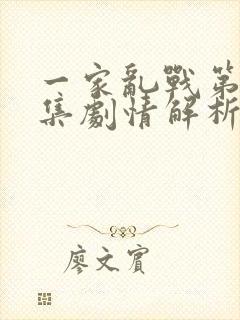 一家亂戰第
集劇情解析
廖文賓